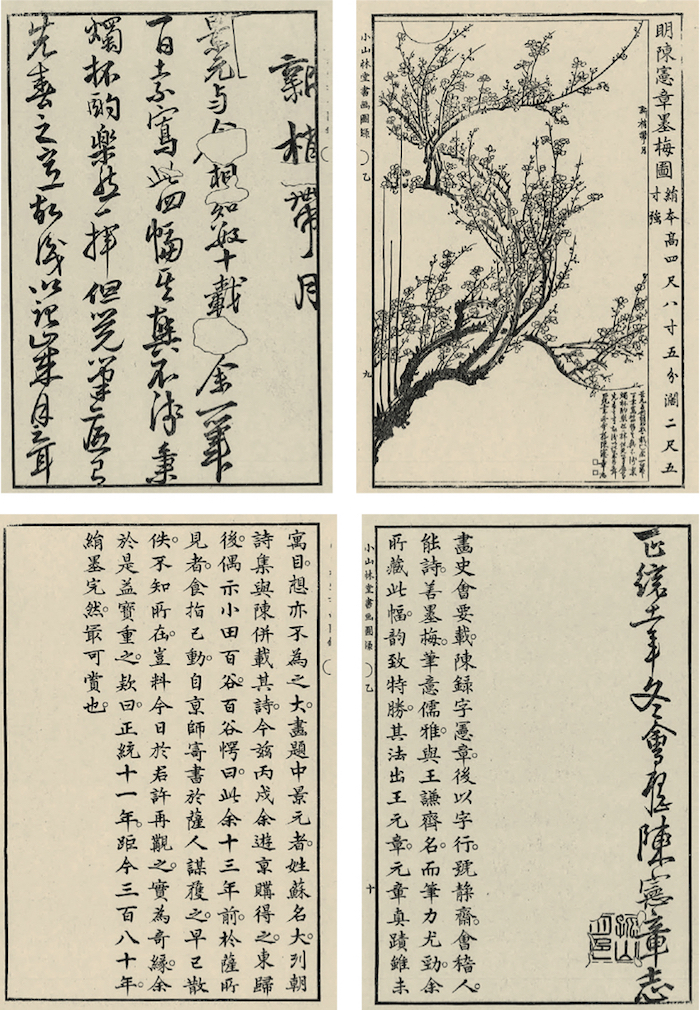 明陳憲章墨梅圖
絹本高四尺八寸五分濶二尺五
寸強
新梢帶月
小山林堂書画圖録
乙
九
新梢帶月
景元与 相知 十載 余一筆
一日 寫此四幅其興不淺秉
燭抔酌樂然一揮但覺筆底已
先春之意故識以記歲月耳
正統十一年冬會稽陳憲章志
畫史會要載陳録字憲章後以字行號静齋會稽人。
能詩。善墨梅。筆意儒雅。與王謙齊名。而筆力尤勁。余
所藏此幅。韵致特勝。其法出王元章。元章真蹟雖未
小山林堂書画圖録
乙
十
寓目。想亦不為之大。畫題中景元者。姓蘇名大。列朝
詩集與陳併載其詩。今茲丙戌余遊京購得之。東歸
後偶示小田百谷。百谷愕曰。此余十三年前。於薩所
見者。食指已動。自京師寄書於薩人謀獲之。早已散
佚。不知所在。豈料今日於君許再觀之。實為奇縁。余
於是益寶重之。欵曰。正統十一年。距今三百八十年。
絹墨完然。最可賞也。